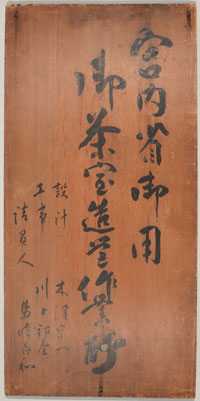 宮内省御用
御茶室造営作業所
設計 木津宗一
工事 川上
請負人